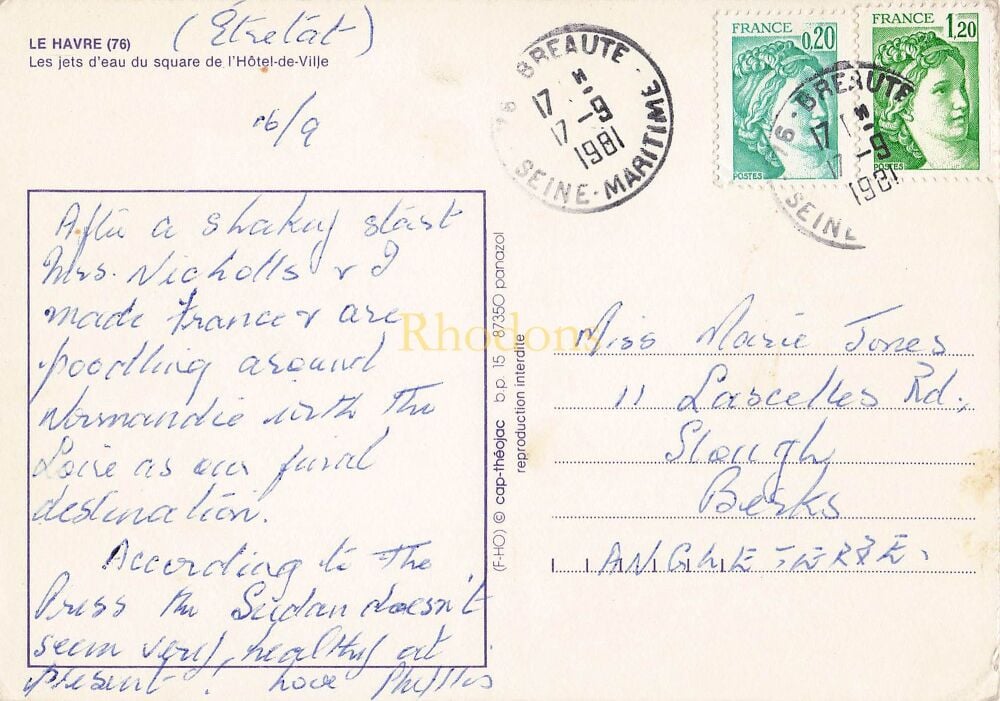 LE HAVRE (76)
(Étretât)
Les jets d'eau du square de l'Hôtel-de-Ville
16/9
After a shaky start
Mrs. Nicholls & I
made France & are
poodling around
Normandie with the
Loire as our final
destination.
According to the
Press the Sudan doesn't
seem very healthy at
present. Love Phyllis
(F-HO) © cap-théojac b.p. 15 87350 panazol
reproduction interdite
Rhodons
76 - BREAUTE -
17 H
17 -9
1981
SEINE-MARITIME
FRANCE
0,20
POSTES
FRANCE
1,20
POSTES
76 - BREAUTE
17 H
17 -9
1981
SEINE
Miss Marie Jones
11 Lascelles Rd.,
Slough
Berks
ANGLETERRE.